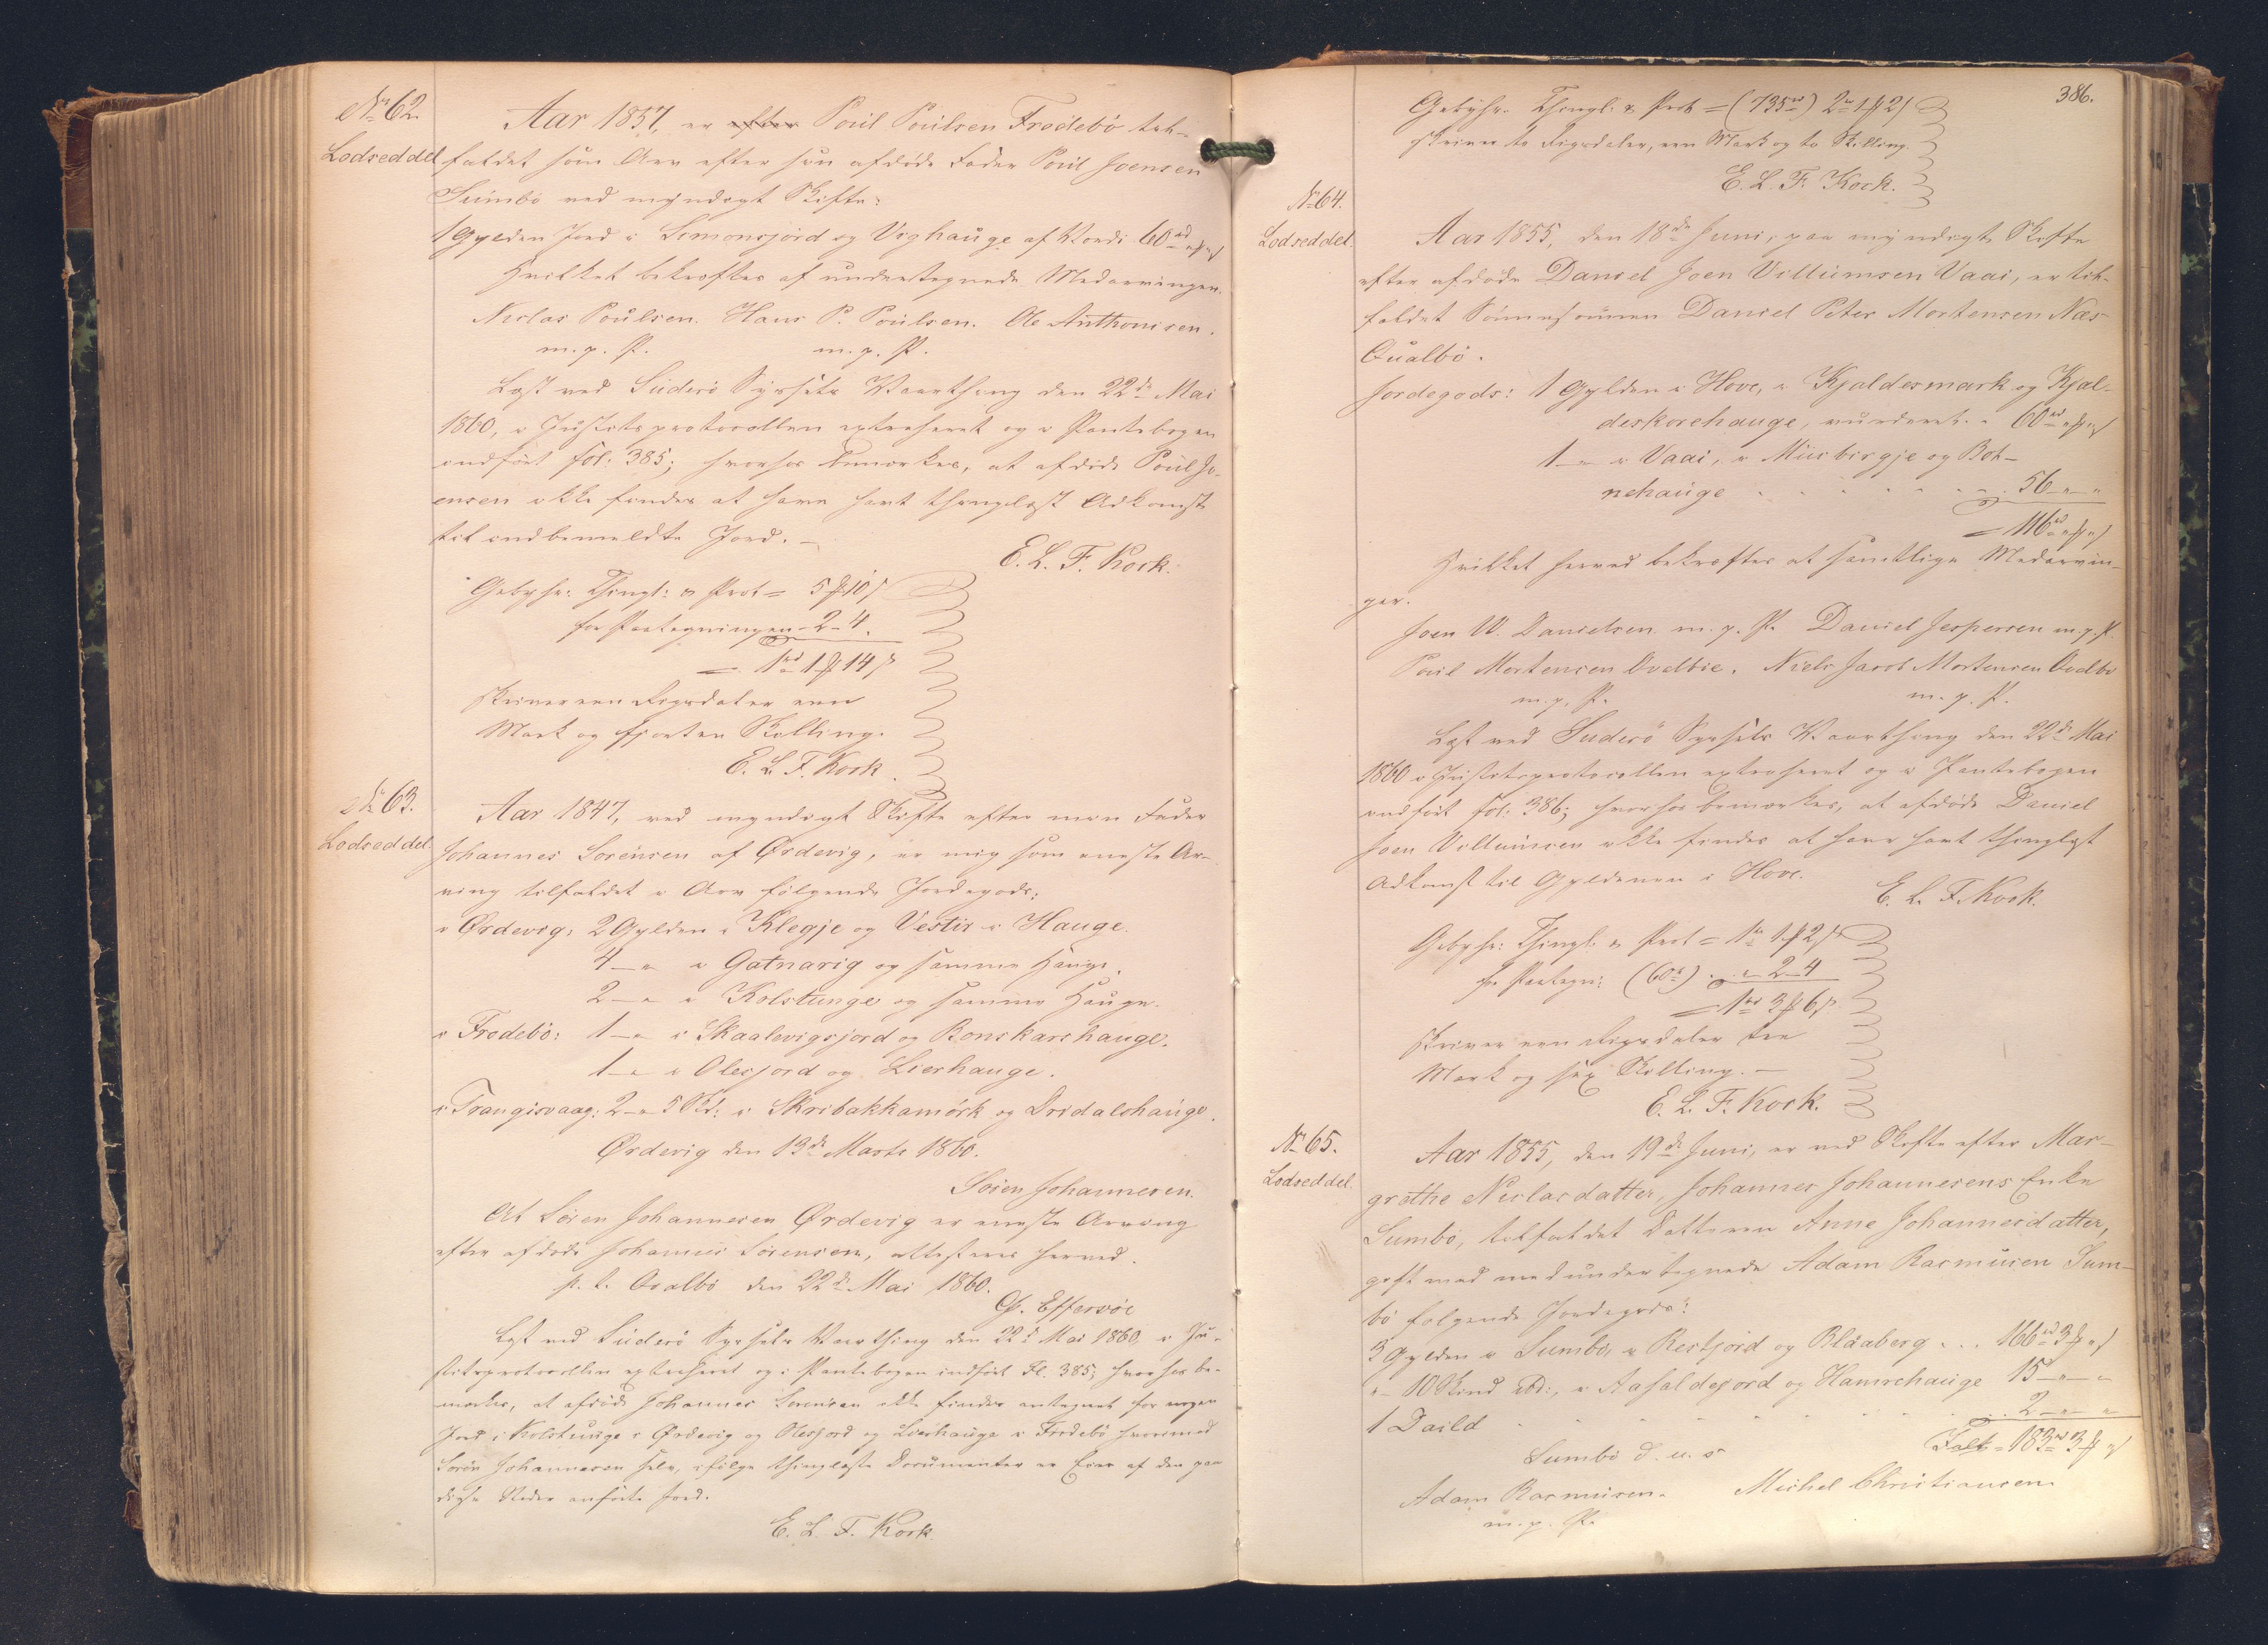 No 62.
Lodseddel
Aar 1857, er efter Poul Poulsen Frodebö til-
faldet som Arv efter sin afdöde Fader Poul Joensen
Sumbö ved myndigt Skifte:
1 Gylden Jord i Simonsjord og Vighauge af Værdi 60 rd " β " s
Hvilket bekræftes af undertegnede Medarvinger.
Niclas Poulsen. Hans P. Poulsen. Ole Anthonisen.
m. p. P. m. p. P.
Læst ved Suderö Syssels Vaarthing den 22de Mai
1860, i Justitsprotocollen extraheret og i Pantebogen
indfört fol: 385; hvorhos bemærkes, at afdöde Poul Jo-
ensen ikke findes at have havt thinglæst Adkomst
til indbemeldte Jord. –
E. L. F. Kock.
Gebyhr: Thingl: & Prot = 5 β 10 s
for Paategningen - 2 - 4.
= 1 rd 1 β 14 s
skriver een Rigsdaler een
Mark og fjorten Skilling.
E. L. F. Kock
No 63.
Lodseddel.
Aar 1847, ved myndigt Skifte efter min Fader
Johannes Sörensen af Ørdevig, er mig som eneste Ar-
ving tilfaldet i Arv fölgende Jordegods:
i Ørdevig: 2 Gylden i Klegje og Vestir i Hauge.
4 – " i Gatnarig og samme Hauge.
2 – " i Kolstunge og samme Hauge.
i Frodebö: 1 – " i Skaalevigsjord og Bonskarshauge.
1 – " i Olesjord og Lierhauge.
i Trangisvaag: 2 – " 5 Skd: i Skribakkamörk og Dridalshauge.
Ørdevig den 13de Marts 1860.
Sören Johannesen.
At Sören Johannesen Ørdevig er eneste Arving
efter afdöde Johannes Sörensen, attesteres herved.
p. t. Qvalbö den 22de Mai 1860.
G. Effersöe
Læst ved Suderö Syssels Vaarthing den 22de Mai 1860, i Ju-
stitsprotocollen extraheret og i Pantebogen indfört Fl. 385; hvorhos be-
mærkes, at afdöde Johannes Sörensen ikke findes antegnet for nogen
Jord i Kolstunge i Ørdevig og Olesjord og Lierhauge i Frodebö hvorimod
Sören Johannesen selv, ifölge thinglæste Documenter er Eier af den paa
disse Steder anförte Jord.
E. L. F. Kock.
386.
Gebyhr: Thingl: & Prot = (735 rd) 2 rd 1 β 2 s
skriver to Rigsdaler, een Mark og to Skilling.
E. L. F. Kock.
No 64.
Lodseddel.
Aar 1855, den 18de Juni, paa myndigt Skifte
efter afdöde Daniel Joen Villumsen Vaai, er til-
faldet Sönnesönnen Daniel Peter Mortensen Næs
Qualbö.
Jordegods: 1 Gylden i Hove, i Kjaldesmark og Kjal-
deskorehauge, vurderet . " 60 rd " β " s
1 – " i Vaai, i Müsbirgje og Bot-
nehauge . . . . . . . 56 – " – "
= 116 rd " β " s
Hvilket herved bekræftes at samtlige Medarvin-
ger.
Joen W. Danielsen m. p. P. Daniel Jespersen m. p. P.
Poul Mortensen Qvalböe. Niels Jacob Mortensen Qvalbö
m. p. P. m. p. P.
Læst ved Suderö Syssels Vaarthing den 22de Mai
1860 i Justitsprotocollen extraheret og i Pantebogen
indfört fol: 386; hvorhos bemærkes, at afdöde Daniel
Joen Villumsen ikke findes at have havt thinglæst
Adkomst til Gyldenen i Hove.
E. L. F. Kock.
Gebyhr: Thingl: & Prot = 1 rd 1 β 2 s
for Paategn: (60 rd) . " 2 – 4
= 1 rd 3 β 6 s
skriver een Rigsdaler tre
Mark og sex Skilling. –
E. L. F. Kock.
No 65.
Lodseddel.
Aar 1855, den 19de Juni, er ved Skifte efter Mar-
grethe Niclasdatter, Johannes Johannesens Enke
Sumbö, tilfaldet Datteren Anne Johannesdatter,
gift med medundertegnede Adam Rasmusen Sum-
bö fölgende Jordegods:
3 Gylden i Sumbö, i Restjord og Blaaberg . . . 166 rd 3 β " s
" – 10 Skind dto:, i Aasaldejord og Hamrehauge 15 – " – "
1 Daild . . . . . . . . 2 – " – "
Talt = 183 rd 3 β " s
Sumbö d. u. s
Adam Rasmusen. Michel Christiansen.
m. p. P.